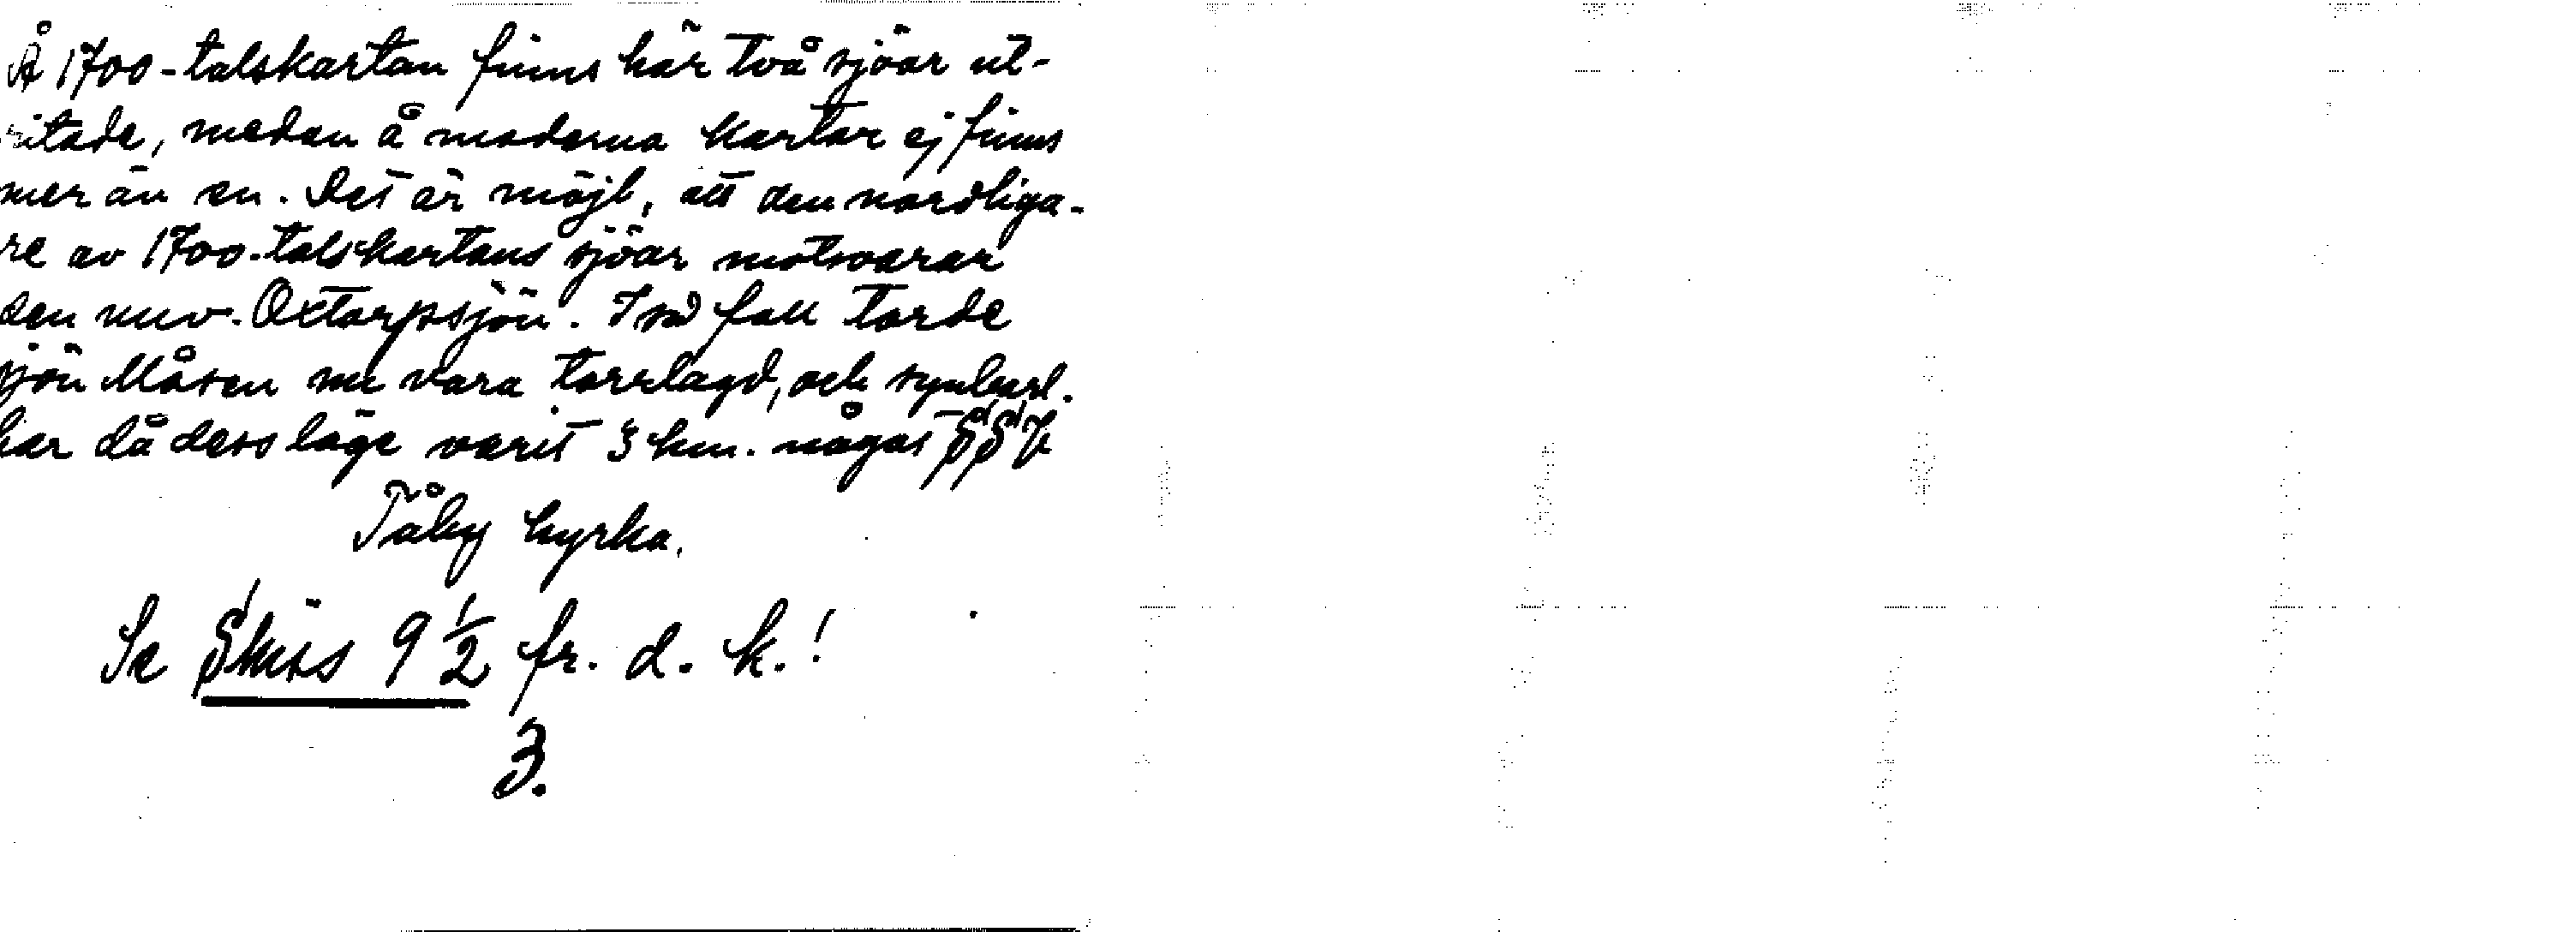 Å 1700-talskartan finns här två sjöar ut-
ritade, medan å moderna kartor ej finns
mer än en. Det är möjl, att den nordliga-
re av 1700-talskartans sjöar motsvarar
den nuv. Oxtorpssjön. I så fall torde
sjön Måsen nu vara torrlagd, och synbarl.
har då dess läge varit 3 km. något SSV
Tåby kyrka.
Se Skiss 9 1/2 fr. d. k.!
3.